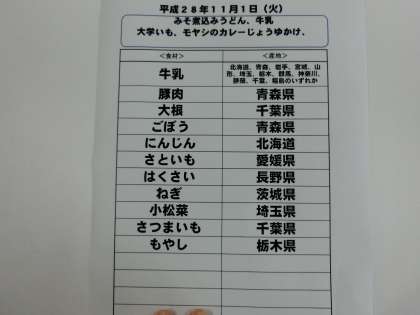 平成28年11月1日(火)
みそ煮込みうどん、牛乳
大学いも、モヤシのカレーじょうゆかけ、
<食材> <産地>
牛乳 北海道、青森、岩手、宮城、山
形、埼玉、栃木、群馬、神奈川、
静岡、千葉、福島のいずれか
豚肉 青森県
大根 千葉県
ごぼう 青森県
にんじん 北海道
さといも 愛媛県
はくさい 長野県
ねぎ 茨城県
小松菜 埼玉県
さつまいも 千葉県
もやし 栃木県